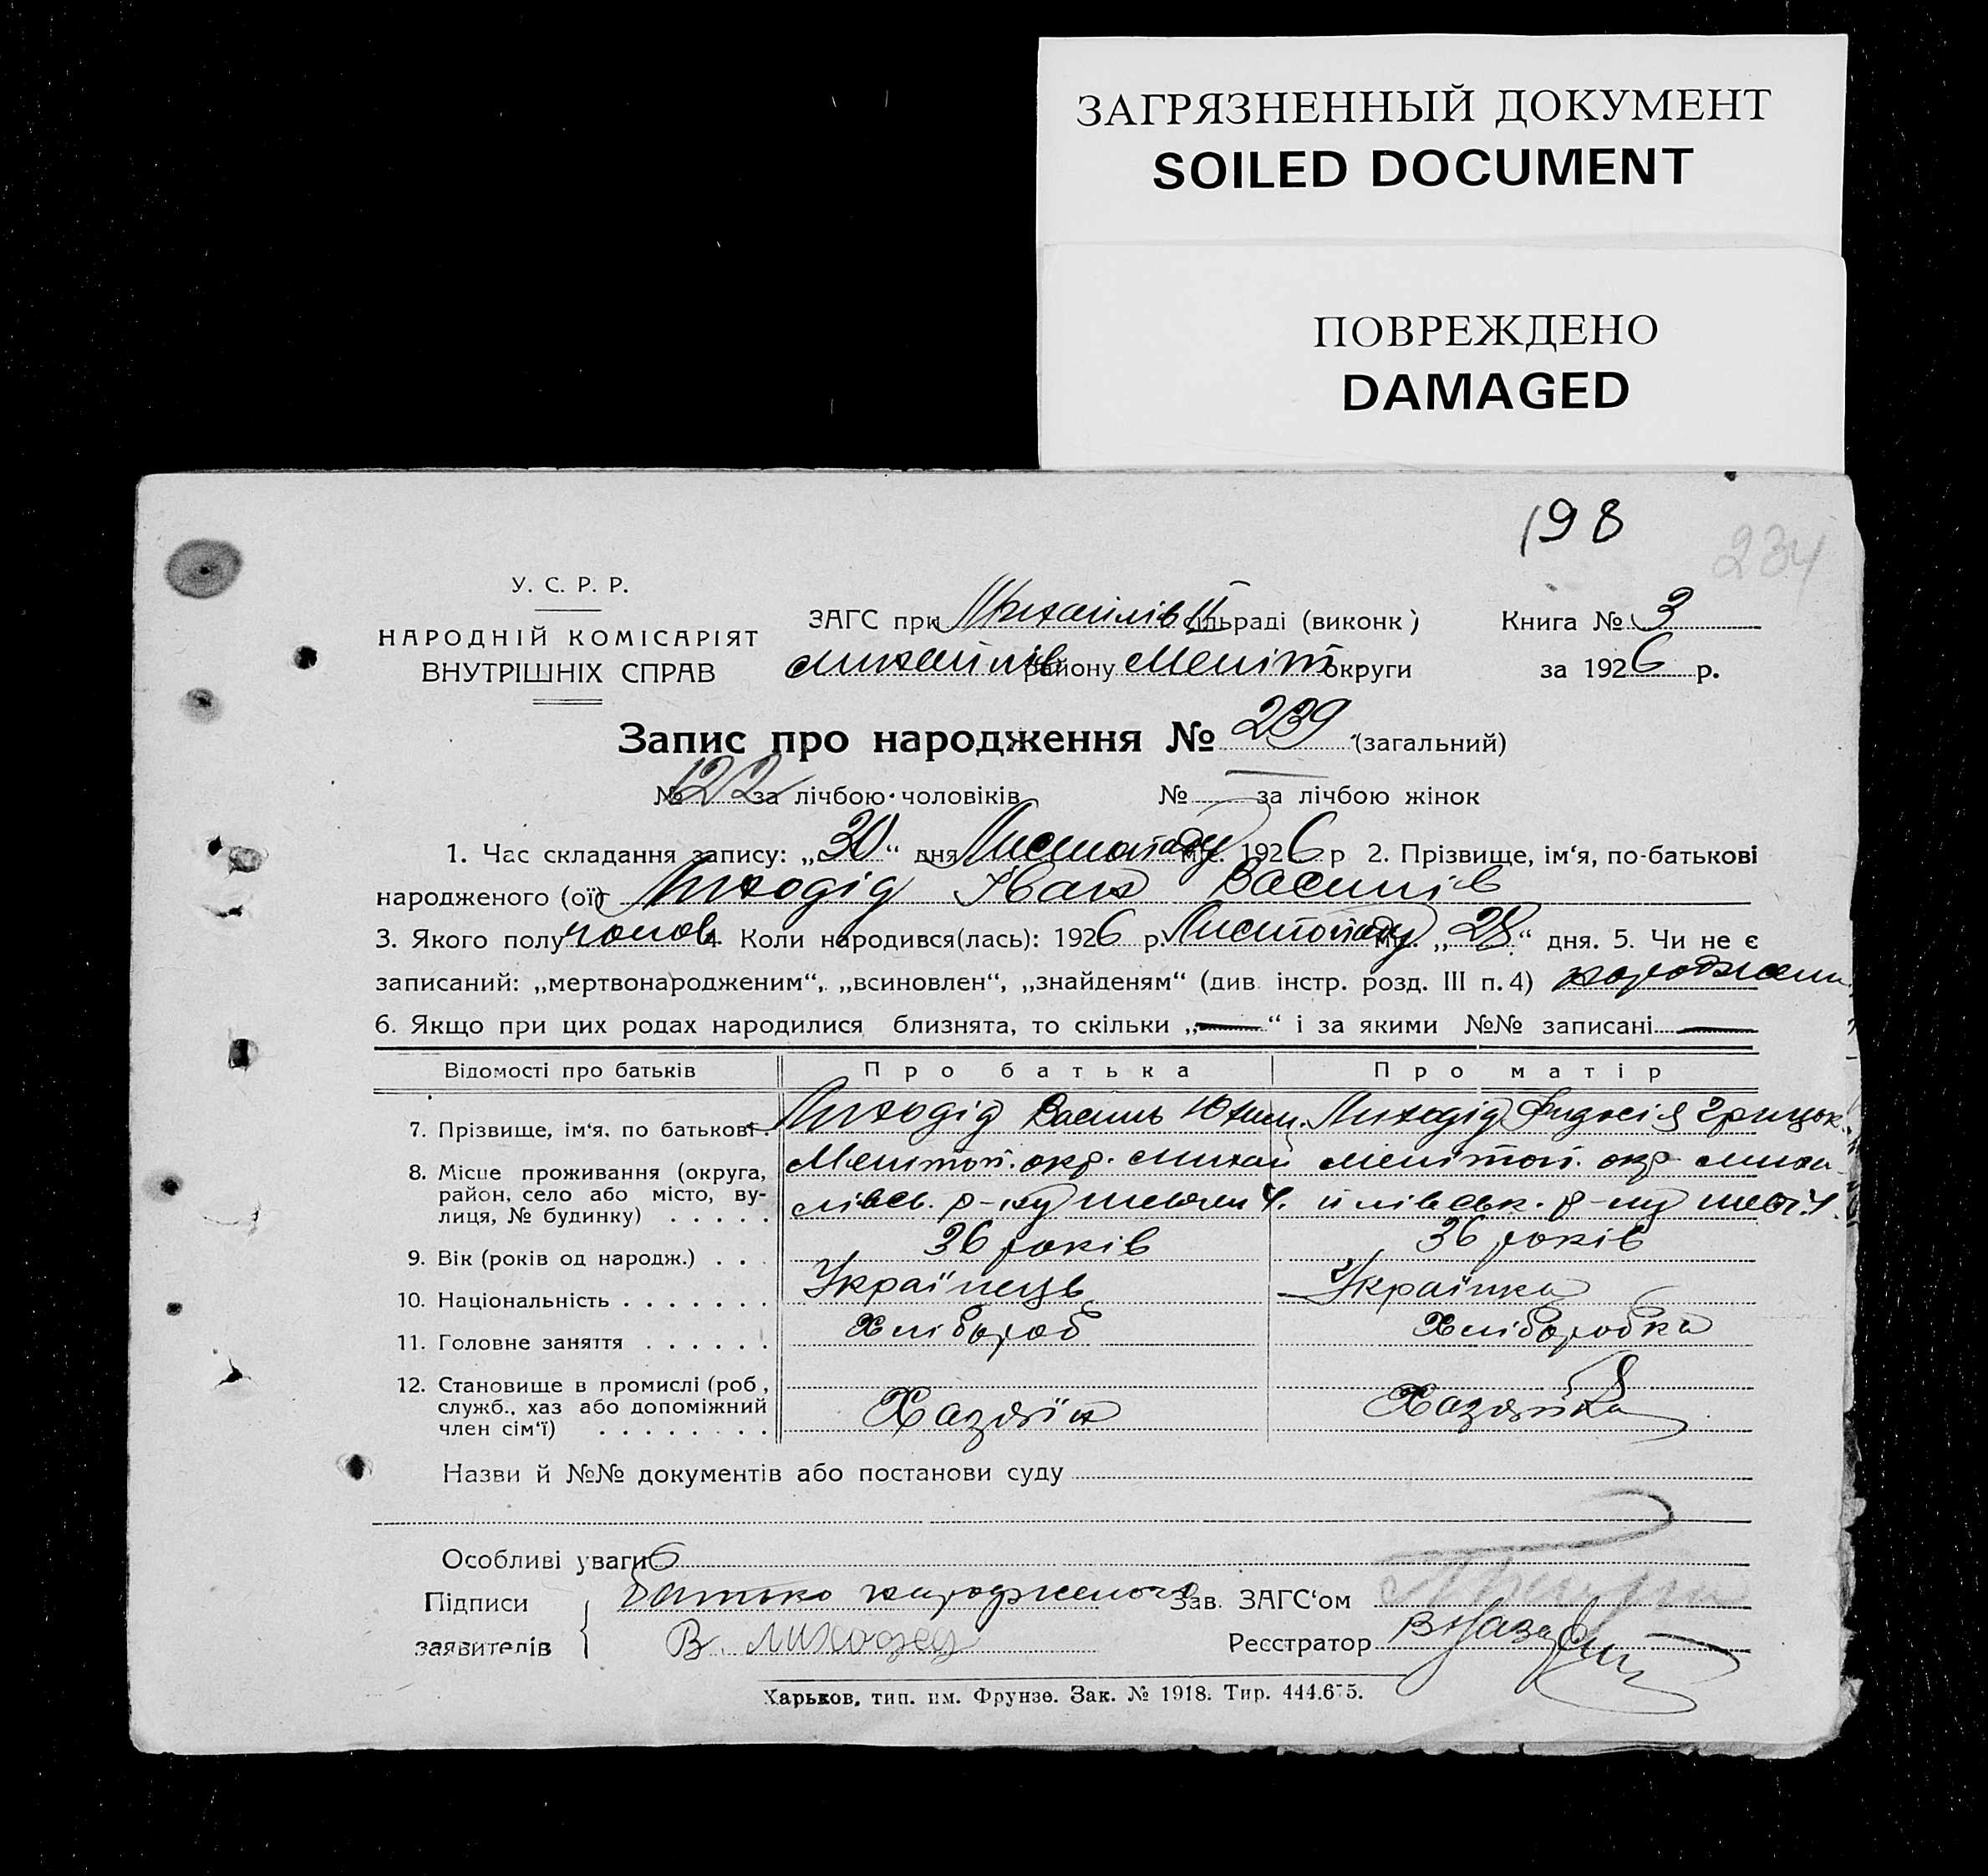 ЗАГРЯЗНЕННЫЙ ДОКУМЕНТ
SOILED DOCUMENT
ПОВРЕЖДЕНО
DAMAGED
198
234
У. С. Р. Р.
НАРОДНІЙ КОМІСАРІЯТ
ВНУТРІШНІХ СПРАВ
ЗАГС при Михайлів ІІ сільраді (виконк)
Михайлів району Меліт округи
Книга № 3
за 1926 р.
Запис про народження № 239 (загальний)
№ 122 за лічбою чоловіків № — за лічбою жінок
1. Час складання запису: „30“ дня Листопаду міс. 1926 р 2. Прізвище, ім‘я, по-батькові
народженого (ої) Лиходід Іван Василів
3. Якого полу чолов. 4. Коли народився(лась): 1926 р. Листопаду міс. „28“ дня. 5. Чи не є
записаний: „мертвонародженим“, „всиновлен“, „знайденям“ (див. інстр. розд. III п. 4)
6. Якщо при цих родах народилися близнята, то скільки „—“ і за якими №№ записані —
Відомості про батьків Про батька Про матір
7. Прізвище, ім‘я, по батькові. Лиходід Василь Юхим. Лиходід Грицьк.
8. Місце проживання (округа, Мелітоп. окр. Михай Мелітоп. окр Миха
район, село або місто, ву- лівсь. р-ну 4. йлівськ. р-ну 4.
лиця, № будинку) . . . . .
9. Вік (років од народж.) . . . 36 років 36 років
10. Національність . . . . . . . Українець Українка
11. Головне заняття . . . . . . Хлібороб Хліборобка
12. Становище в промислі (роб,
служб., хаз або допоміжний Хазяїн Хазяйка
член сім‘ї) . . . . . . . .
Назви й №№ документів або постанови суду
Особливі уваги
Підписи Батько народженого Зав. ЗАГС‘ом
заявителів В. Лиходед Реєстратор
Харьков, тип. им. Фрунзе. Зак. № 1918. Тир. 444.675.